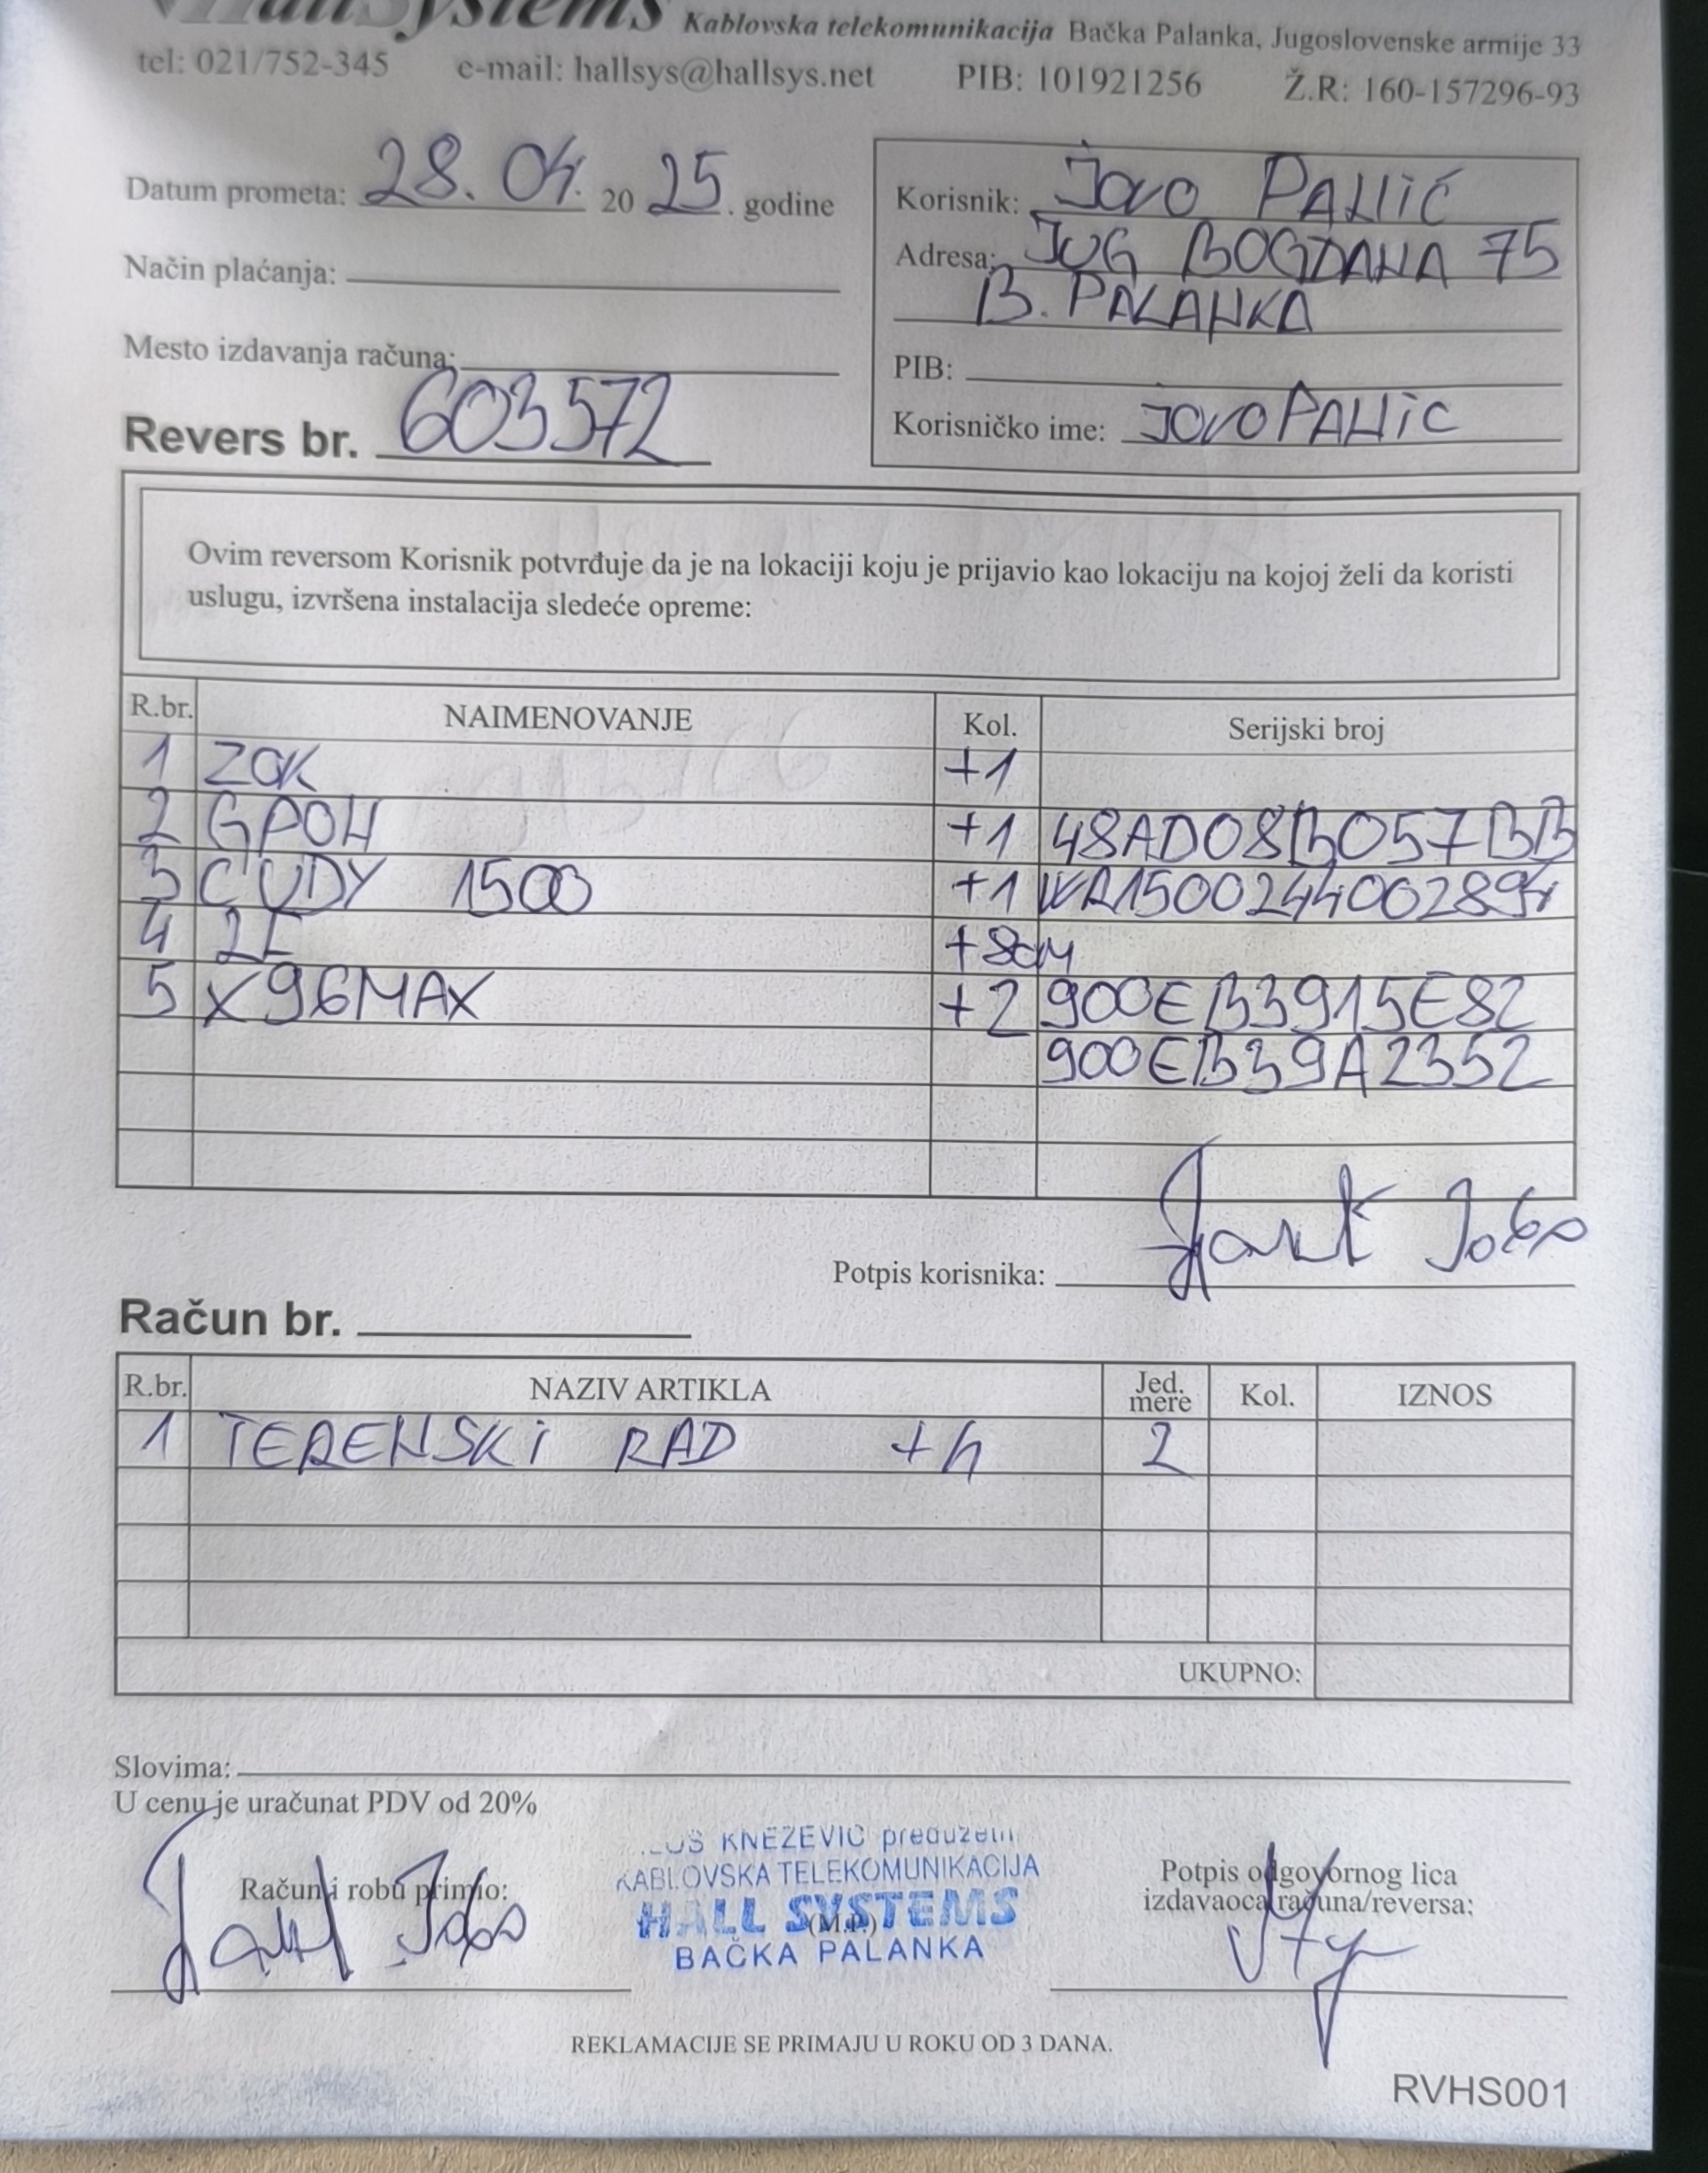 HallSystems Kablovska telekomunikacija Bačka Palanka, Jugoslovenske armije 33
tel: 021/752-345 e-mail: hallsys@hallsys.net PIB: 101921256 Ž.R: 160-157296-93
Datum prometa: 28. 04. 20 25. godine
Način plaćanja:
Mesto izdavanja računa:
Revers br. 603572
Korisnik: JOVO PANIĆ
Adresa: JUG BOGDANA 75
B. PALANKA
PIB:
Korisničko ime: JOVOPANIC
Ovim reversom Korisnik potvrđuje da je na lokaciji koju je prijavio kao lokaciju na kojoj želi da koristi
uslugu, izvršena instalacija sledeće opreme:
R.br. NAIMENOVANJE Kol. Serijski broj
1 ZOK +1
2 GPON +1 48AD08B057BB
3 CUDY 1500 +1 WR1500244002894
4 2E
5 X96MAX +2 900EB3915E82
900EB39A2352
Potpis korisnika:
Račun br.
R.br. NAZIV ARTIKLA Jed. mere Kol. IZNOS
1 TERENSKI RAD +h 2
UKUPNO:
Slovima:
U cenu je uračunat PDV od 20%
Račun i robu primio:
KNEŽEVIĆ preduzetn
KABLOVSKA TELEKOMUNIKACIJA
HALL SYSTEMS
(M.P.)
BAČKA PALANKA
Potpis odgovornog lica
izdavaoca računa/reversa:
REKLAMACIJE SE PRIMAJU U ROKU OD 3 DANA.
RVHS001